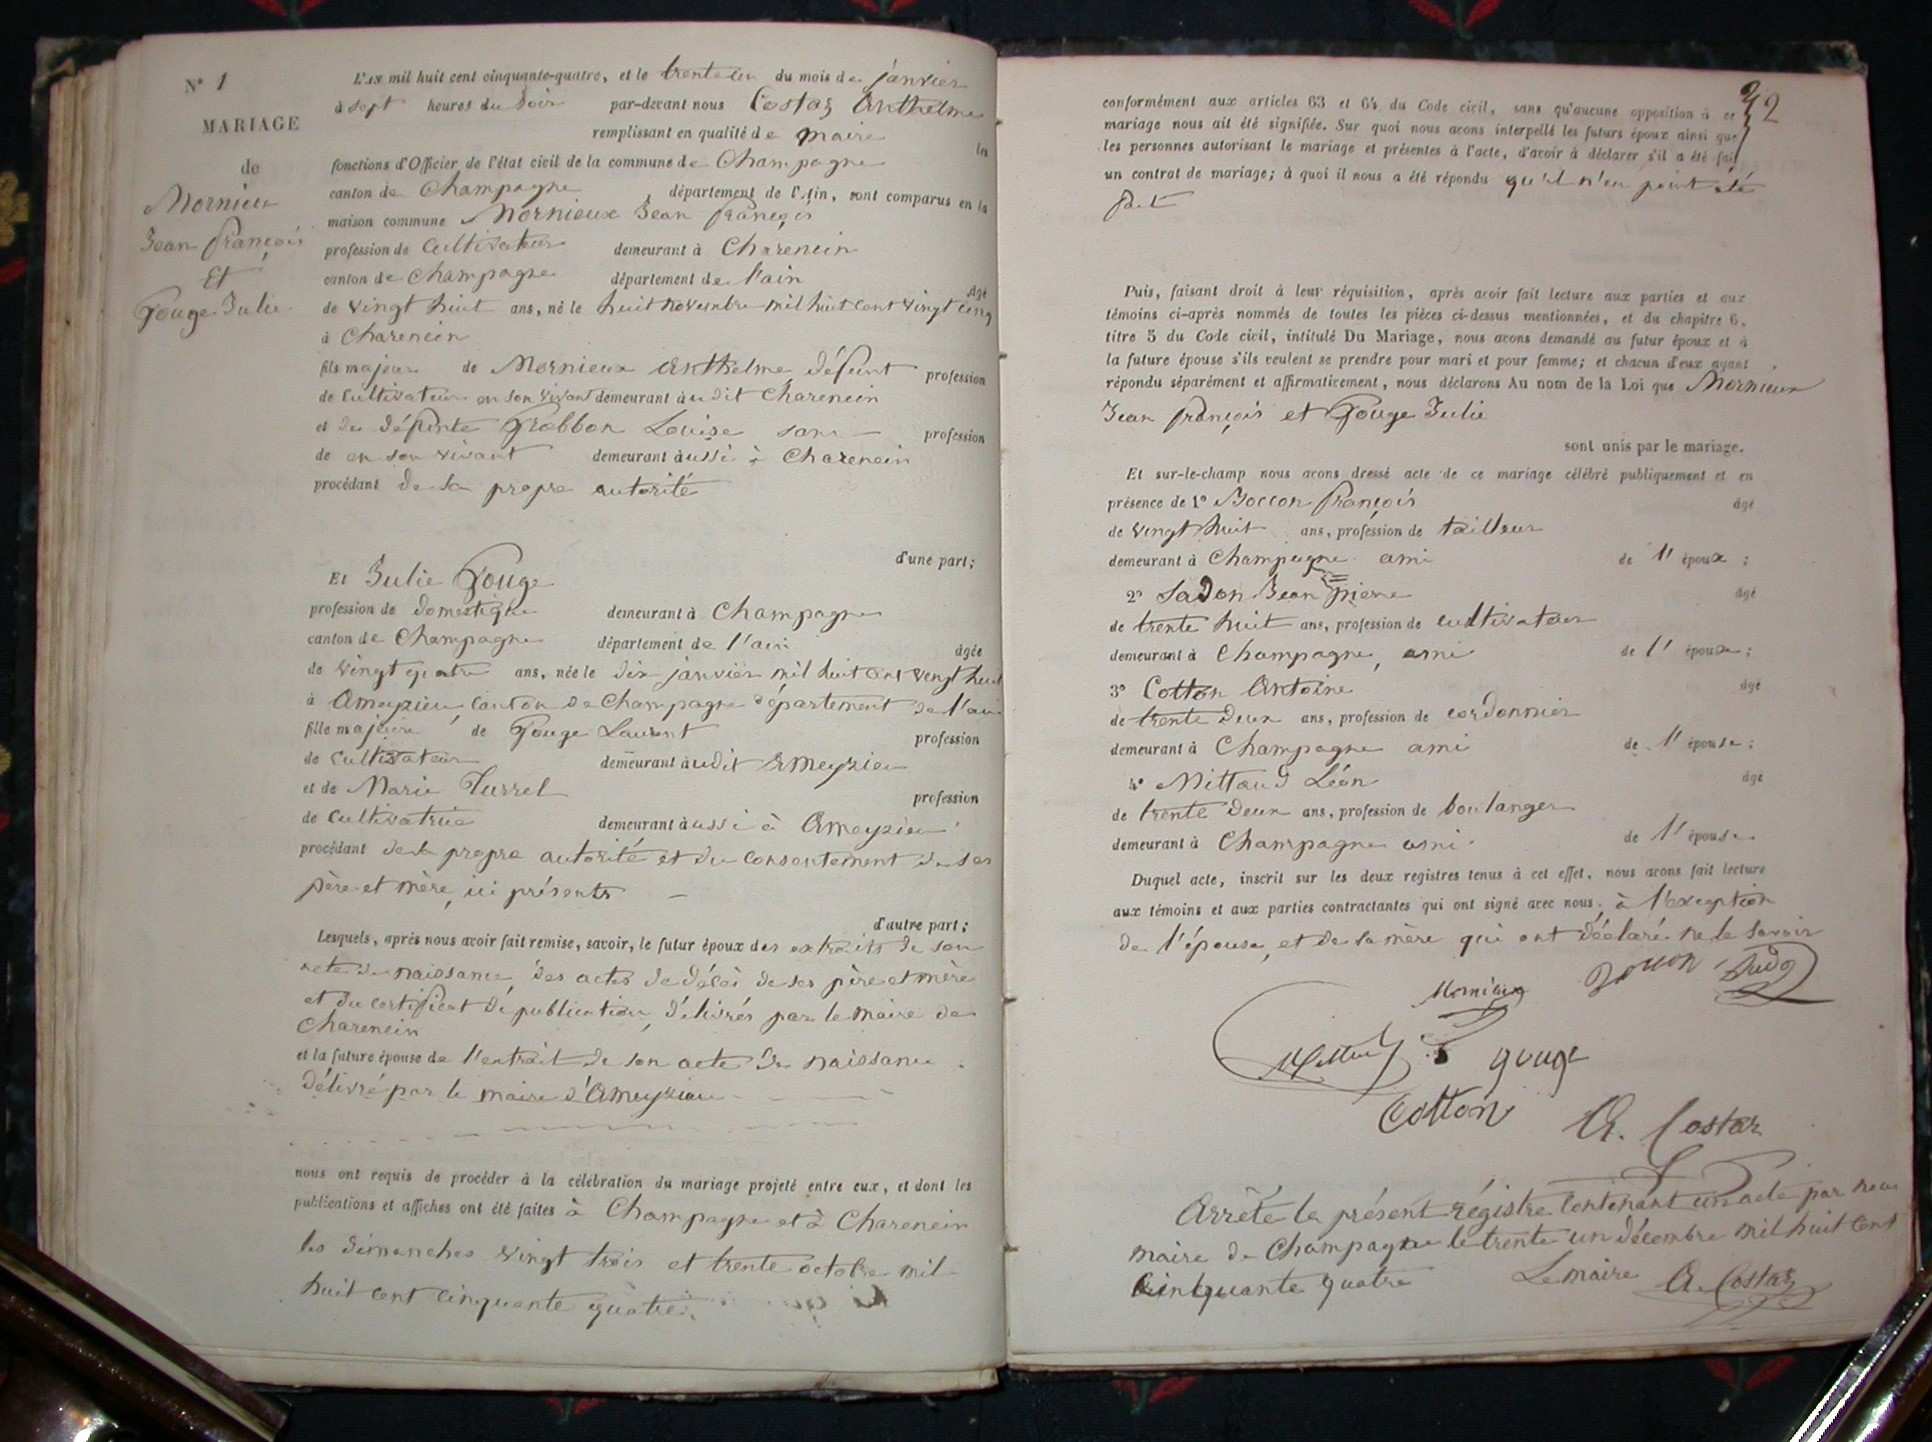 N° 1
MARIAGE
de
Mornieux
Jean françois
Et
Gouge Julie
L'AN mil huit cent cinquante-quatre, et le trente un du mois de janvier
à sept heures du Soir par-devant nous Costaz Anthelme
remplissant en qualité de maire les
fonctions d'Officier de l'état civil de la commune de Champagne
canton de Champagne, département de l'Ain, sont comparus en la
maison commune Mornieux Jean françois
profession de cultivateur demeurant à Charencin
canton de Champagne département de l'ain Agé
de vingt huit ans, né le huit novembre mil huit cent vingt cinq
à Charencin
fils majeur de Mornieux Anthelme défunt profession
de Cultivateur en son vivant demeurant audit Charencin
et de défunte Grobbon Louise sans profession
de en son vivant demeurant aussi à Charencin
procédant de sa propre autorité
d'une part;
Et Julie Gouge
profession de domestique demeurant à Champagne
canton de Champagne département de l'ain âgée
de vingt quatre ans, née le dix janvier mil huit cent vingt huit
à Ameyzieu, canton de Champagne département de l'ain
fille majeure de Gouge Laurent profession
de Cultivateur demeurant audit Ameyzieu
et de Marie Turrel profession
de Cultivatrice demeurant aussi à Ameyzieu
procédant de sa propre autorité et du consentement de ses
père et mère, ici présents
d'autre part;
Lesquels, après nous avoir fait remise, savoir, le futur époux des extraits de son
acte de naissance, des actes de décès de ses père et mère
et du certificat de publication, délivrés par le maire de
Charencin
et la future épouse de l'extrait de son acte de naissance
délivré par le maire d'Ameyzieu
nous ont requis de procéder à la célébration du mariage projeté entre eux, et dont les
publications et affiches ont été faites à Champagne et à Charencin
les dimanches vingt trois et trente octobre mil
huit cent cinquante quatre.
conformément aux articles 63 et 64 du Code civil, sans qu'aucune opposition à ce
mariage nous ait été signifiée. Sur quoi nous avons interpellé les futurs époux ainsi que
les personnes autorisant le mariage et présentes à l'acte, d'avoir à déclarer s'il a été fait
un contrat de mariage; à quoi il nous a été répondu qu'il n'en point été
fait
Puis, faisant droit à leur réquisition, après avoir fait lecture aux parties et aux
témoins ci-après nommés de toutes les pièces ci-dessus mentionnées, et du chapitre 6,
titre 5 du Code civil, intitulé Du Mariage, nous avons demandé au futur époux et à
la future épouse s'ils veulent se prendre pour mari et pour femme; et chacun d'eux ayant
répondu séparément et affirmativement, nous déclarons Au nom de la Loi que Mornieux
Jean françois et Gouge Julie
sont unis par le mariage.
Et sur-le-champ nous avons dressé acte de ce mariage célébré publiquement et en
présence de 1° Boccon François âgé
de vingt huit ans, profession de tailleur
demeurant à Champagne ami de l'époux;
2° Jean pierre âgé
de trente huit ans, profession de cultivateur
demeurant à Champagne, ami de l'épouse;
3° Cotton Antoine âgé
de trente deux ans, profession de cordonnier
demeurant à Champagne ami de l'épouse;
4° Mittaud Léon âgé
de trente deux ans, profession de boulanger
demeurant à Champagne ami de l'épouse.
Duquel acte, inscrit sur les deux registres tenus à cet effet, nous avons fait lecture
aux témoins et aux parties contractantes qui ont signé avec nous, à l'exception
de l'épouse, et de sa mère qui ont déclaré ne le savoir
Mornieux Boccon
gouge
Cotton A. Costaz
Arrêté le présent régistre contenant un acte par nous
maire de Champagne le trente un décembre mil huit cent
Cinquante quatre Le maire A. Costaz